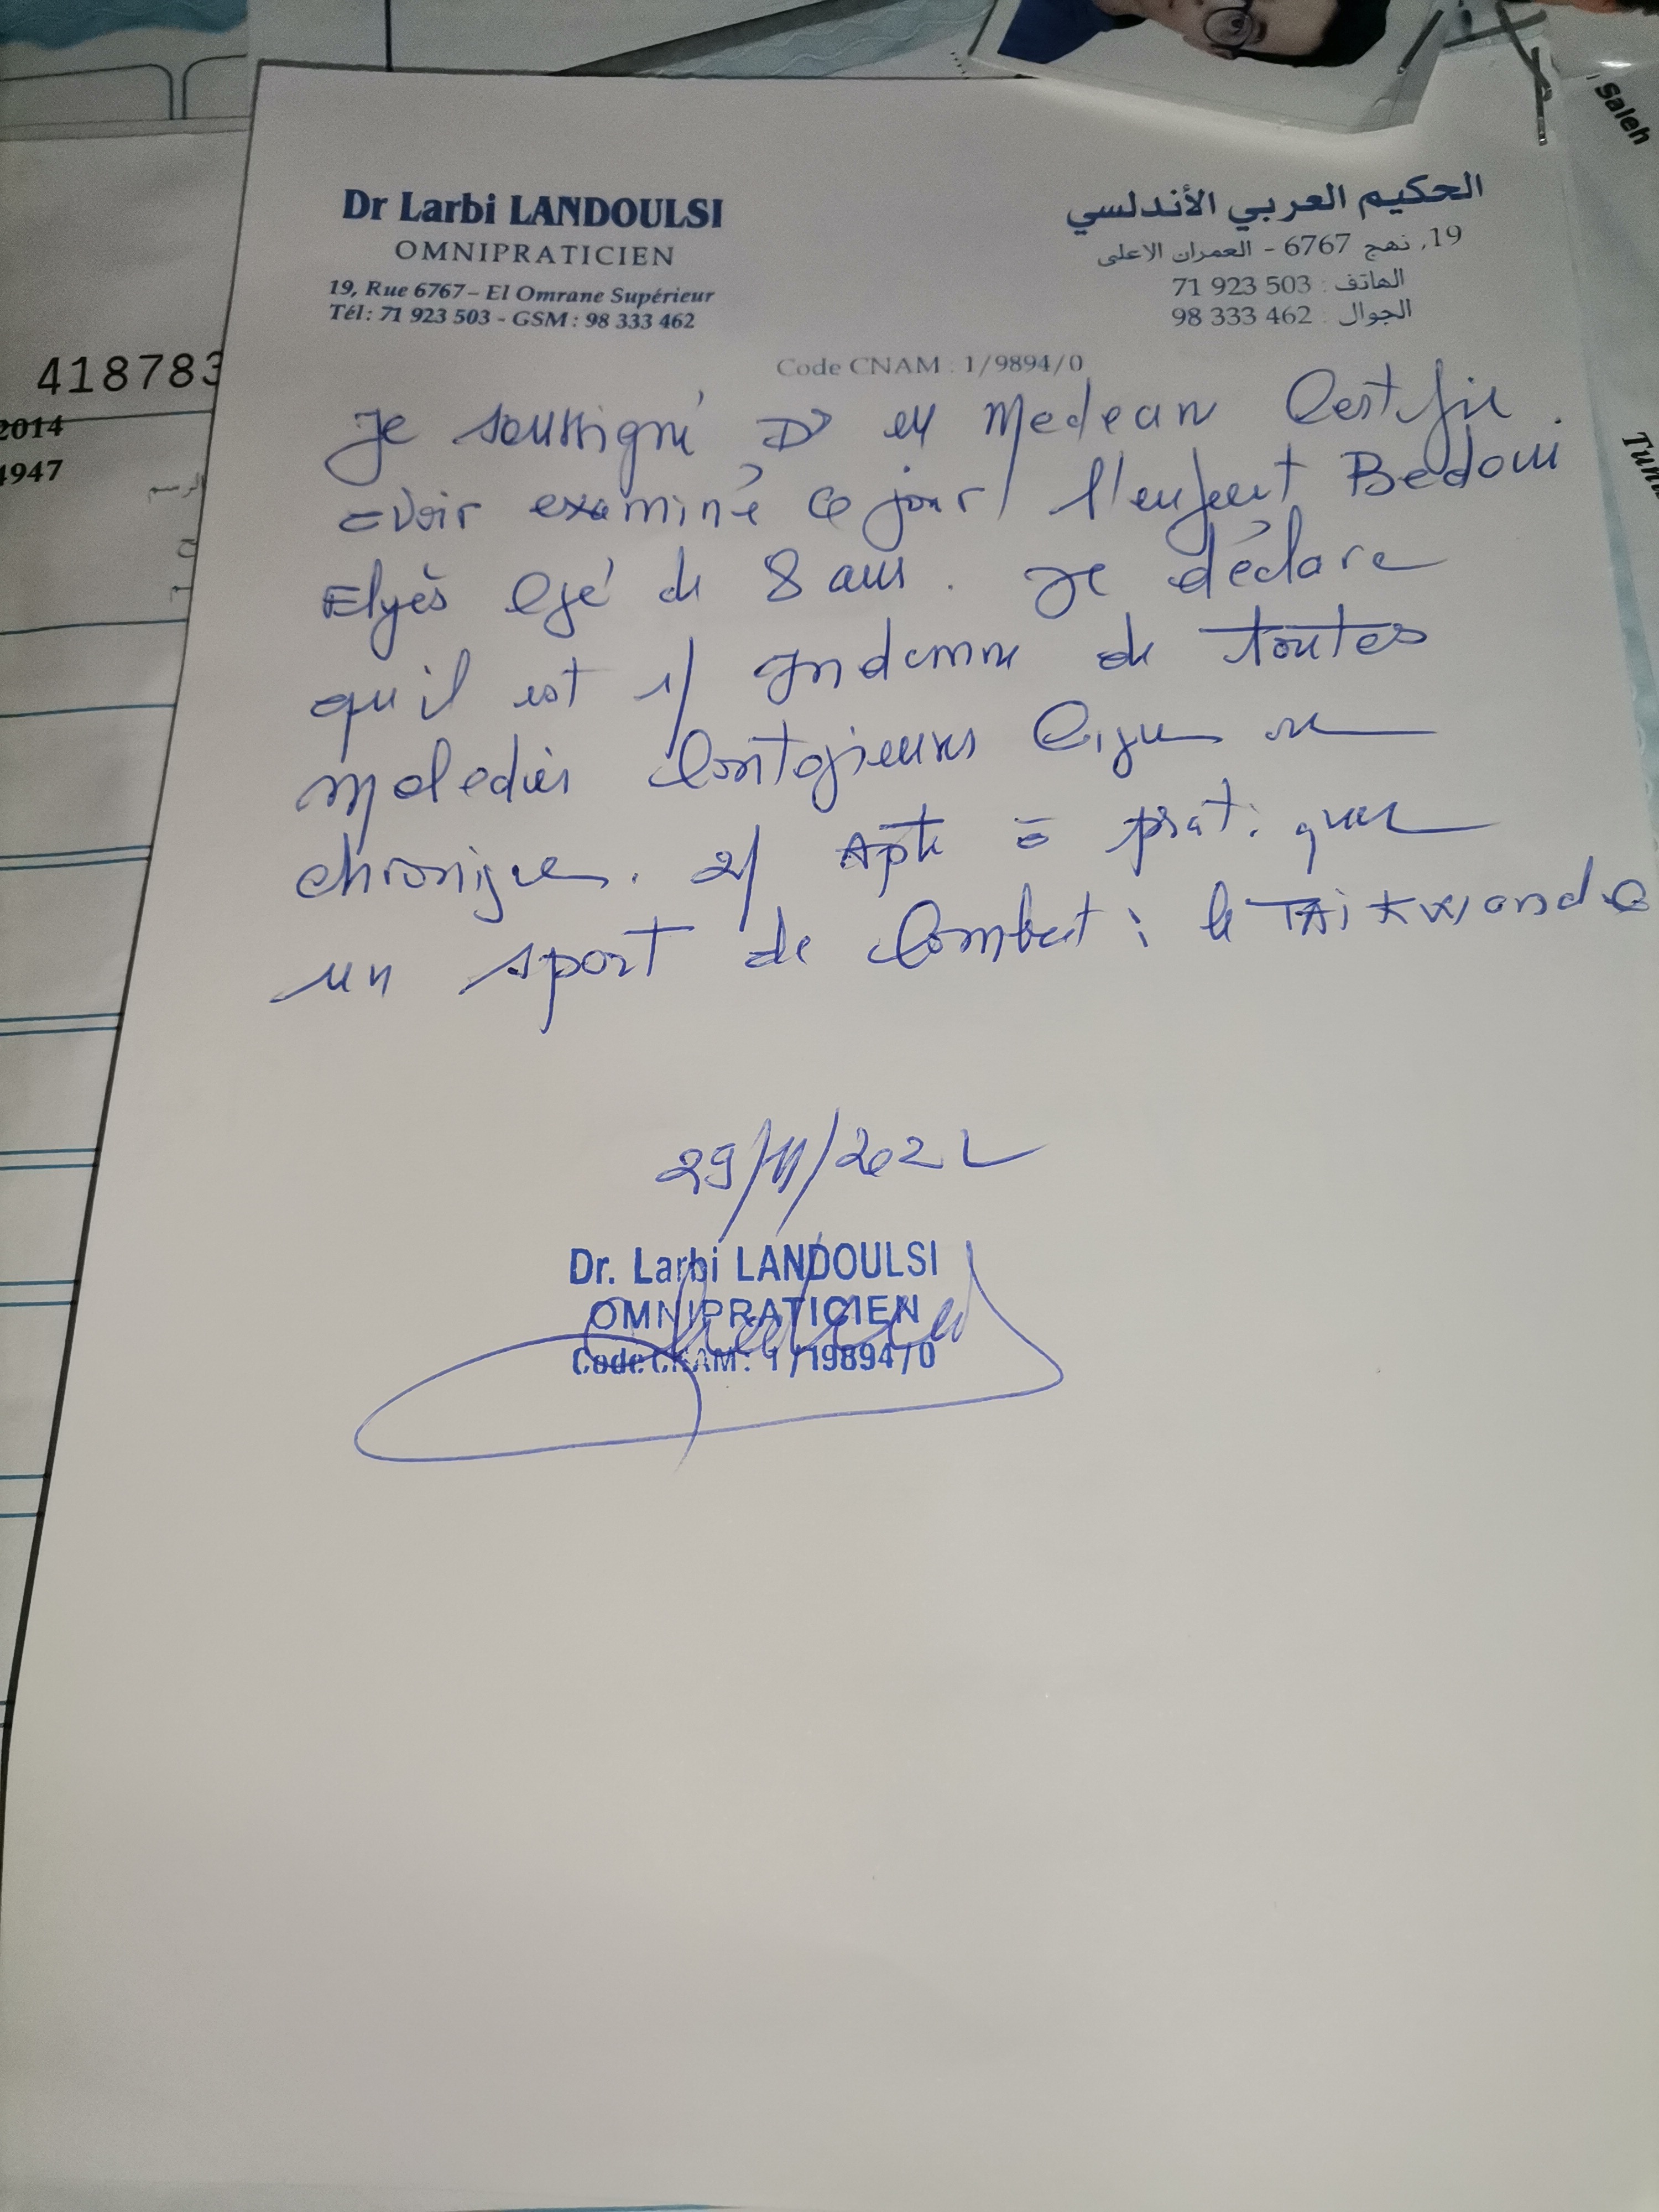 Saleh
Dr Larbi LANDOULSI
OMNIPRATICIEN
19, Rue 6767 – El Omrane Supérieur
Tél : 71 923 503 - GSM : 98 333 462
الحكيم العربي الأندلسي
19, نهج 6767 - العمران الاعلى
الهاتف : 71 923 503
الجوال : 98 333 462
Code CNAM : 1/9894/0
418783
2014
4947
Je soussigné Dr en Medecin Certifie
avoir examiné ce jour l'enfant Bedoui
Elyès agé de 8 ans. Je déclare
qu'il est 1/ Indemne de toutes
maladies Contagieuses Aigue ou
chronique. 2/ Apte à pratiquer
un sport de Combat : le TAiKWondo
29/11/2022
Dr. Larbi LANDOULSI
OMNIPRATICIEN
Code CNAM : 1/19894/0